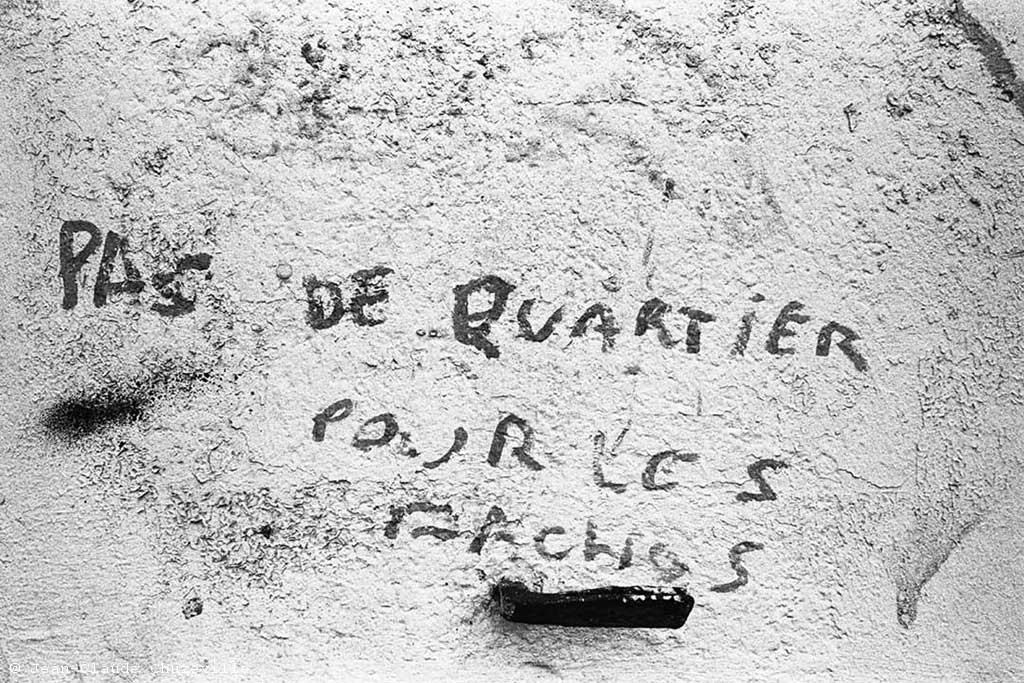 PAS DE QUARTiER
POUR LES
MACHOS
@ Jean-Claude